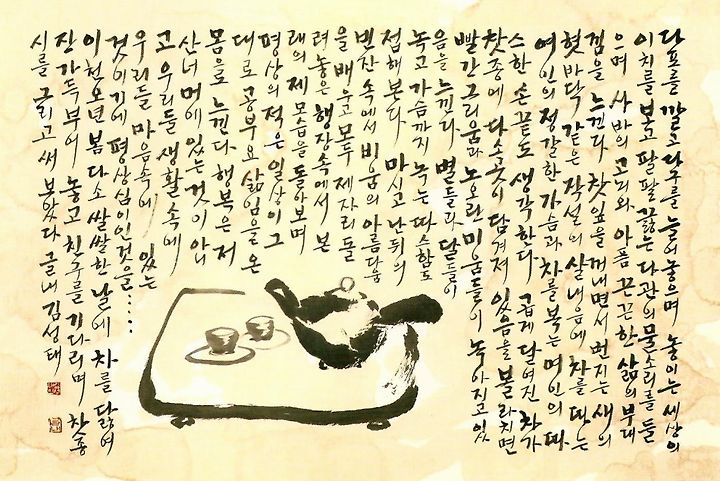 다포를 깔고 다구를 늘어놓으며 놓이는 세상의
이치를 보고 팔팔 끓는 다관의 물소리를 들
으며 사바의 고뇌와 아픔 끈끈한 삶의 부대
낌을 느낀다 찻잎을 꺼내면서 번지는 새의
혓바닥 같은 작설의 살내음에 차를 따는
여인의 정갈한 가슴과 차를 볶는 여인의 따
스한 손끝도 생각한다. 곱게 달여진 차가
찻종에 다소곳이 담겨져 있음을 볼라치면
빨간 그리움과 노오란 미움들이 녹아지고 있
음을 느낀다. 별들과 달들이
녹고 가슴까지 녹는 따스함도
접해 본다. 마시고 난 뒤의
빈잔 속에서 비움의 아름다움
을 배우고 모두 제자리 돌
려놓은 행장속에서 본
래의 제 모습을 돌아보며
평상의 적은 일상이 그
대로 공부요 삶임을 온
몸으로 느낀다. 행복은 저
산너머에 있는 것이 아니
고 우리들 생활 속에
우리들 마음속에 있는
것이기에 평상심이인것을.....
이천오년 봄 다소 쌀쌀한 날에 차를 닳여
잔 가득 부어 놓고 친구를 기다리며 찻종
시를 그리고 써 보았다 글내 김성태